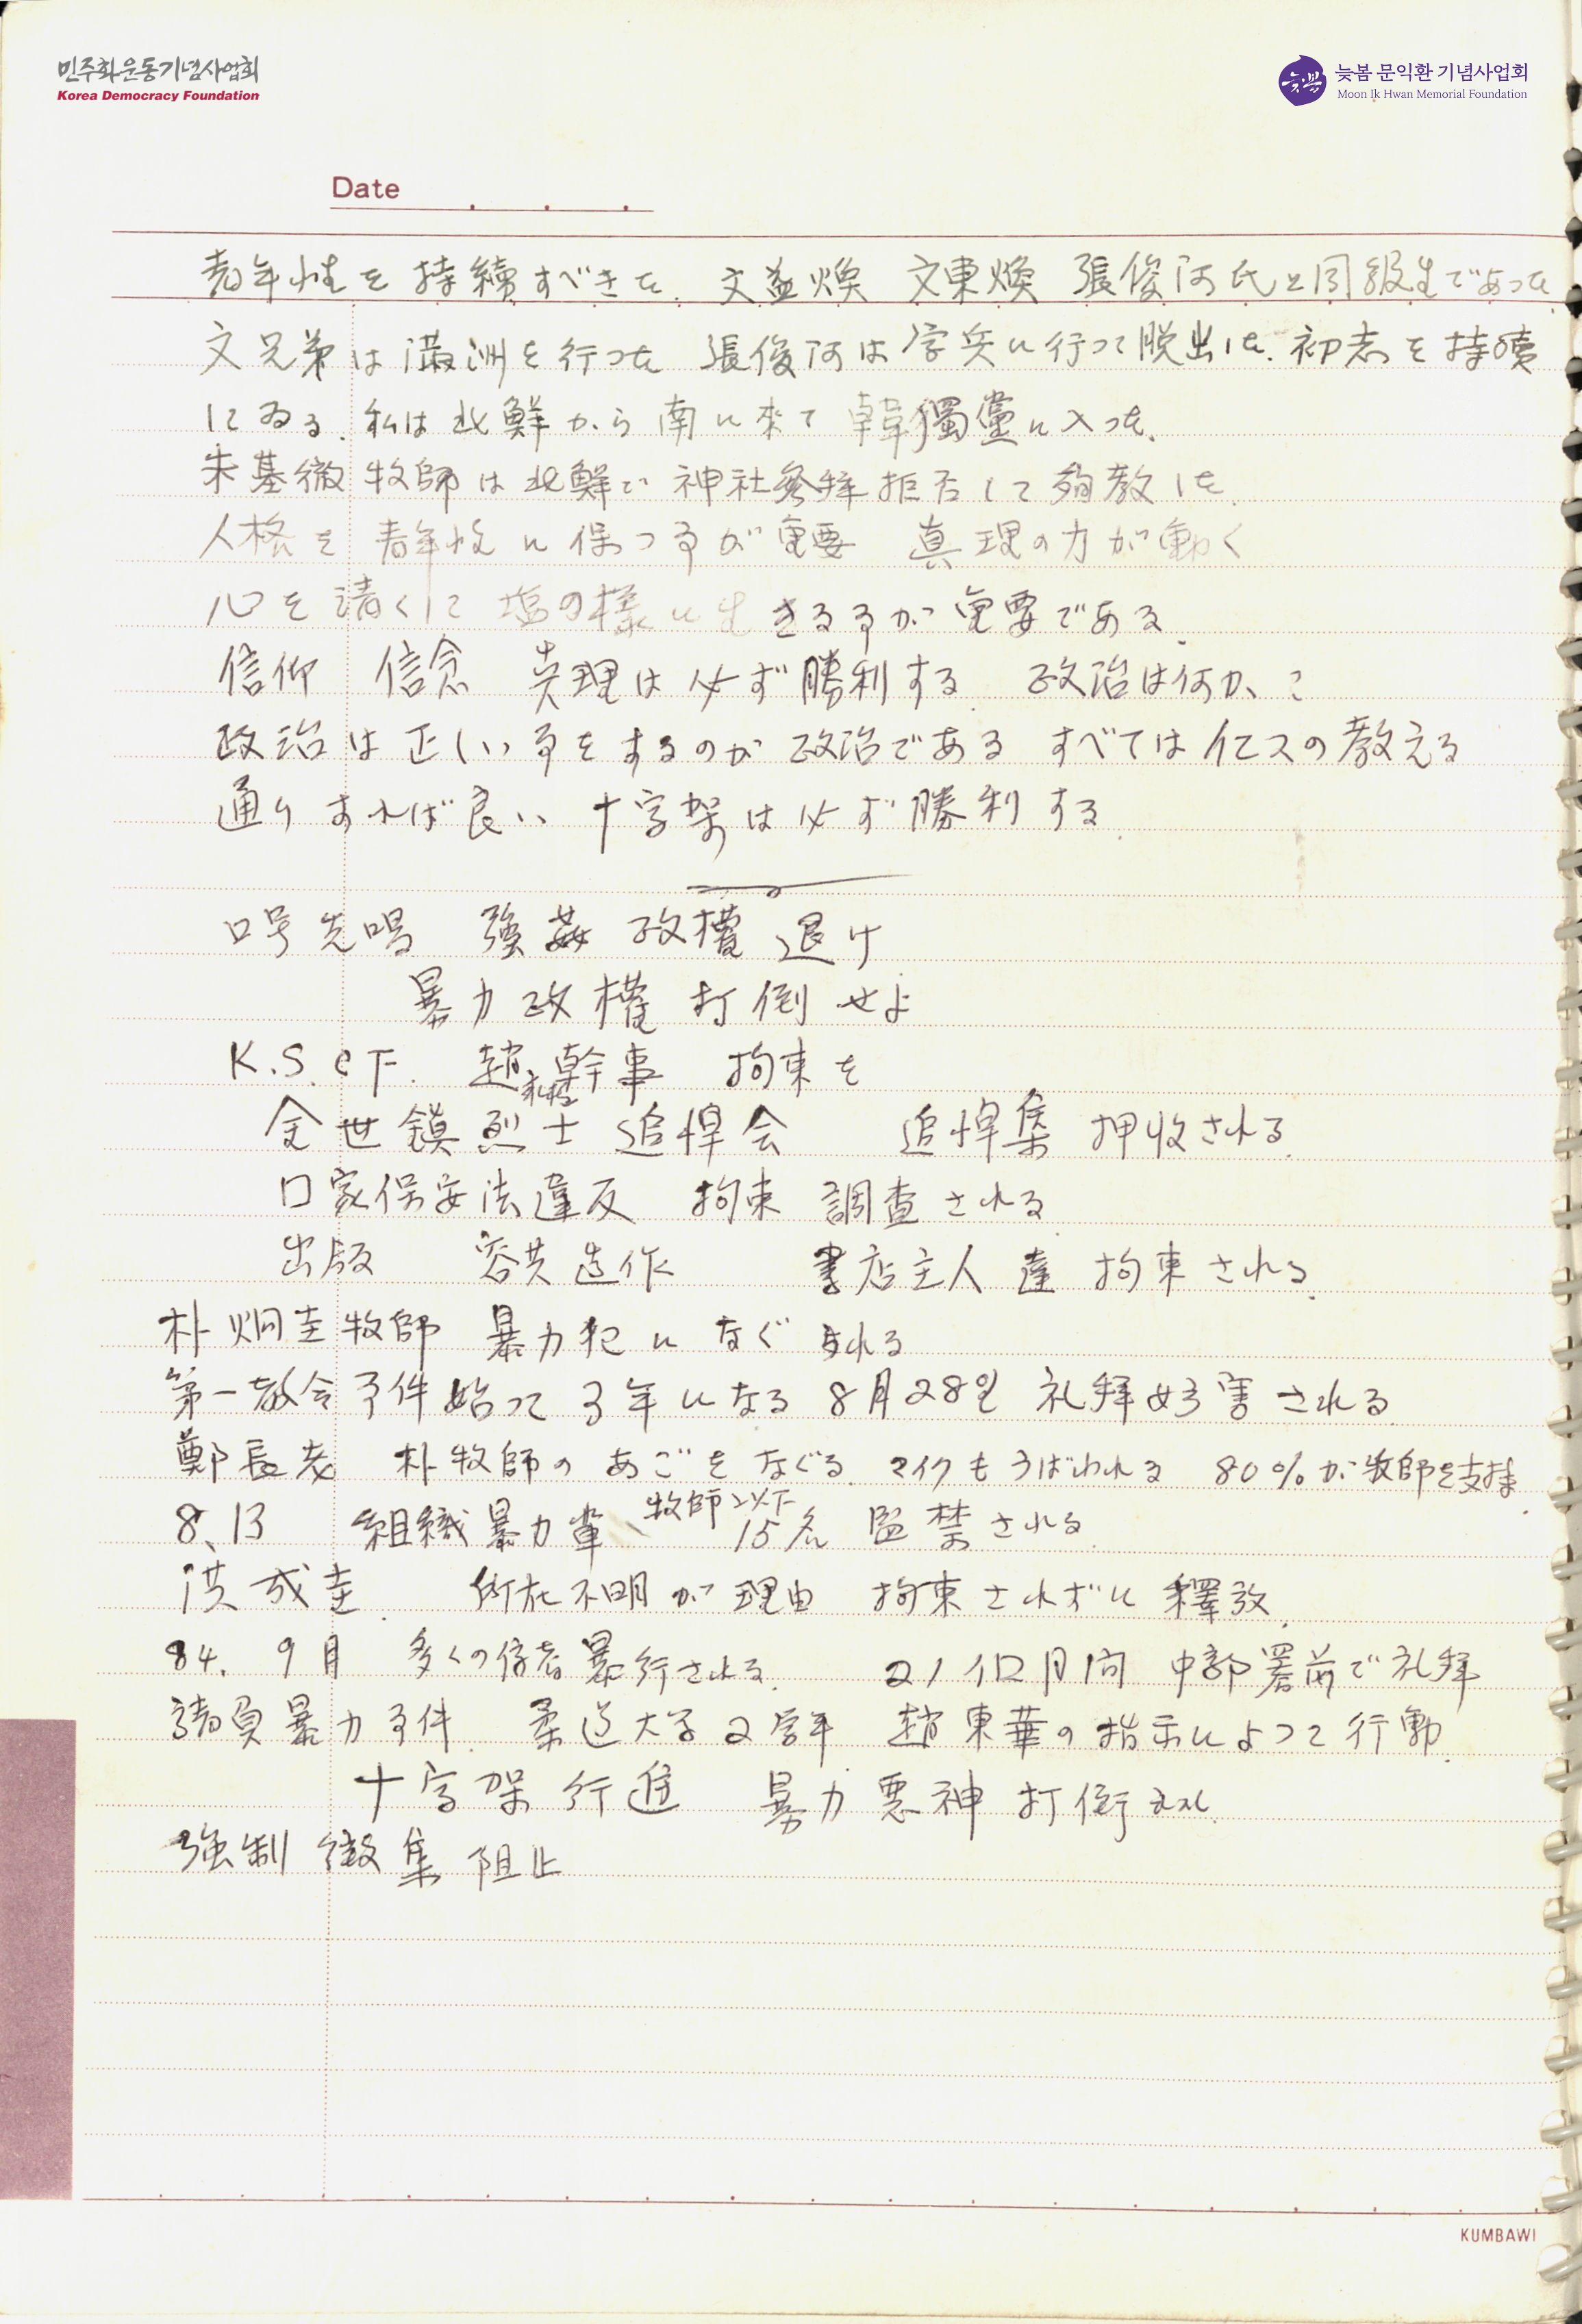 민주화운동기념사업회
Korea Democracy Foundation
늦봄
늦봄 문익환 기념사업회
Moon Ik Hwan Memorial Foundation
Date
青年性を持続すべきだ. 文益煥 文東煥 張俊河氏と同級生であった
文兄弟は満洲を行つた 張俊河は学兵に行って脱出した. 初志を持續
してゐる. 私は北鮮から南に来て 韓獨黨に入つた.
朱基徹牧師は北鮮で 神社參拜拒否して殉教した.
人格を 青年性に保つ事が重要 真理の力が動く
心を清くして 塩の様に生きる事が重要である.
信仰 信念 真理は必ず勝利する. 政治は何か、こ
政治は正しい事をするのが政治である すべてはイエスの教える
通りすれば良い 十字架は必ず勝利する.
口号先唱 強姦政權 退け
暴力政權 打倒せよ
K.S.C.F. 趙 幹事 拘束を
全世鎮烈士追悼会 追悼集 押收される.
口家保安法違反 拘束 調査される.
出版 容共造作 書店主人達 拘束される.
朴炯圭牧師 暴力犯に なぐられる
第一教会事件始って 3年になる 8月28日 礼拜妨害される.
鄭長老 朴牧師の あごを なぐる. マイクもうばわれる 80%が牧師を支持.
8.13 組織暴力輩 牧師以下 15名 監禁される.
洪成圭. 所在不明が理由 拘束されずに 釋放.
84. 9月 多くの信者暴行される. 21個月間 中部署前で礼拜
請負暴力事件. 柔道大学2学年 趙東華の指示によつて行動.
十字架行進 暴力悪神 打
強制徴集 阻止
KUMBAWI